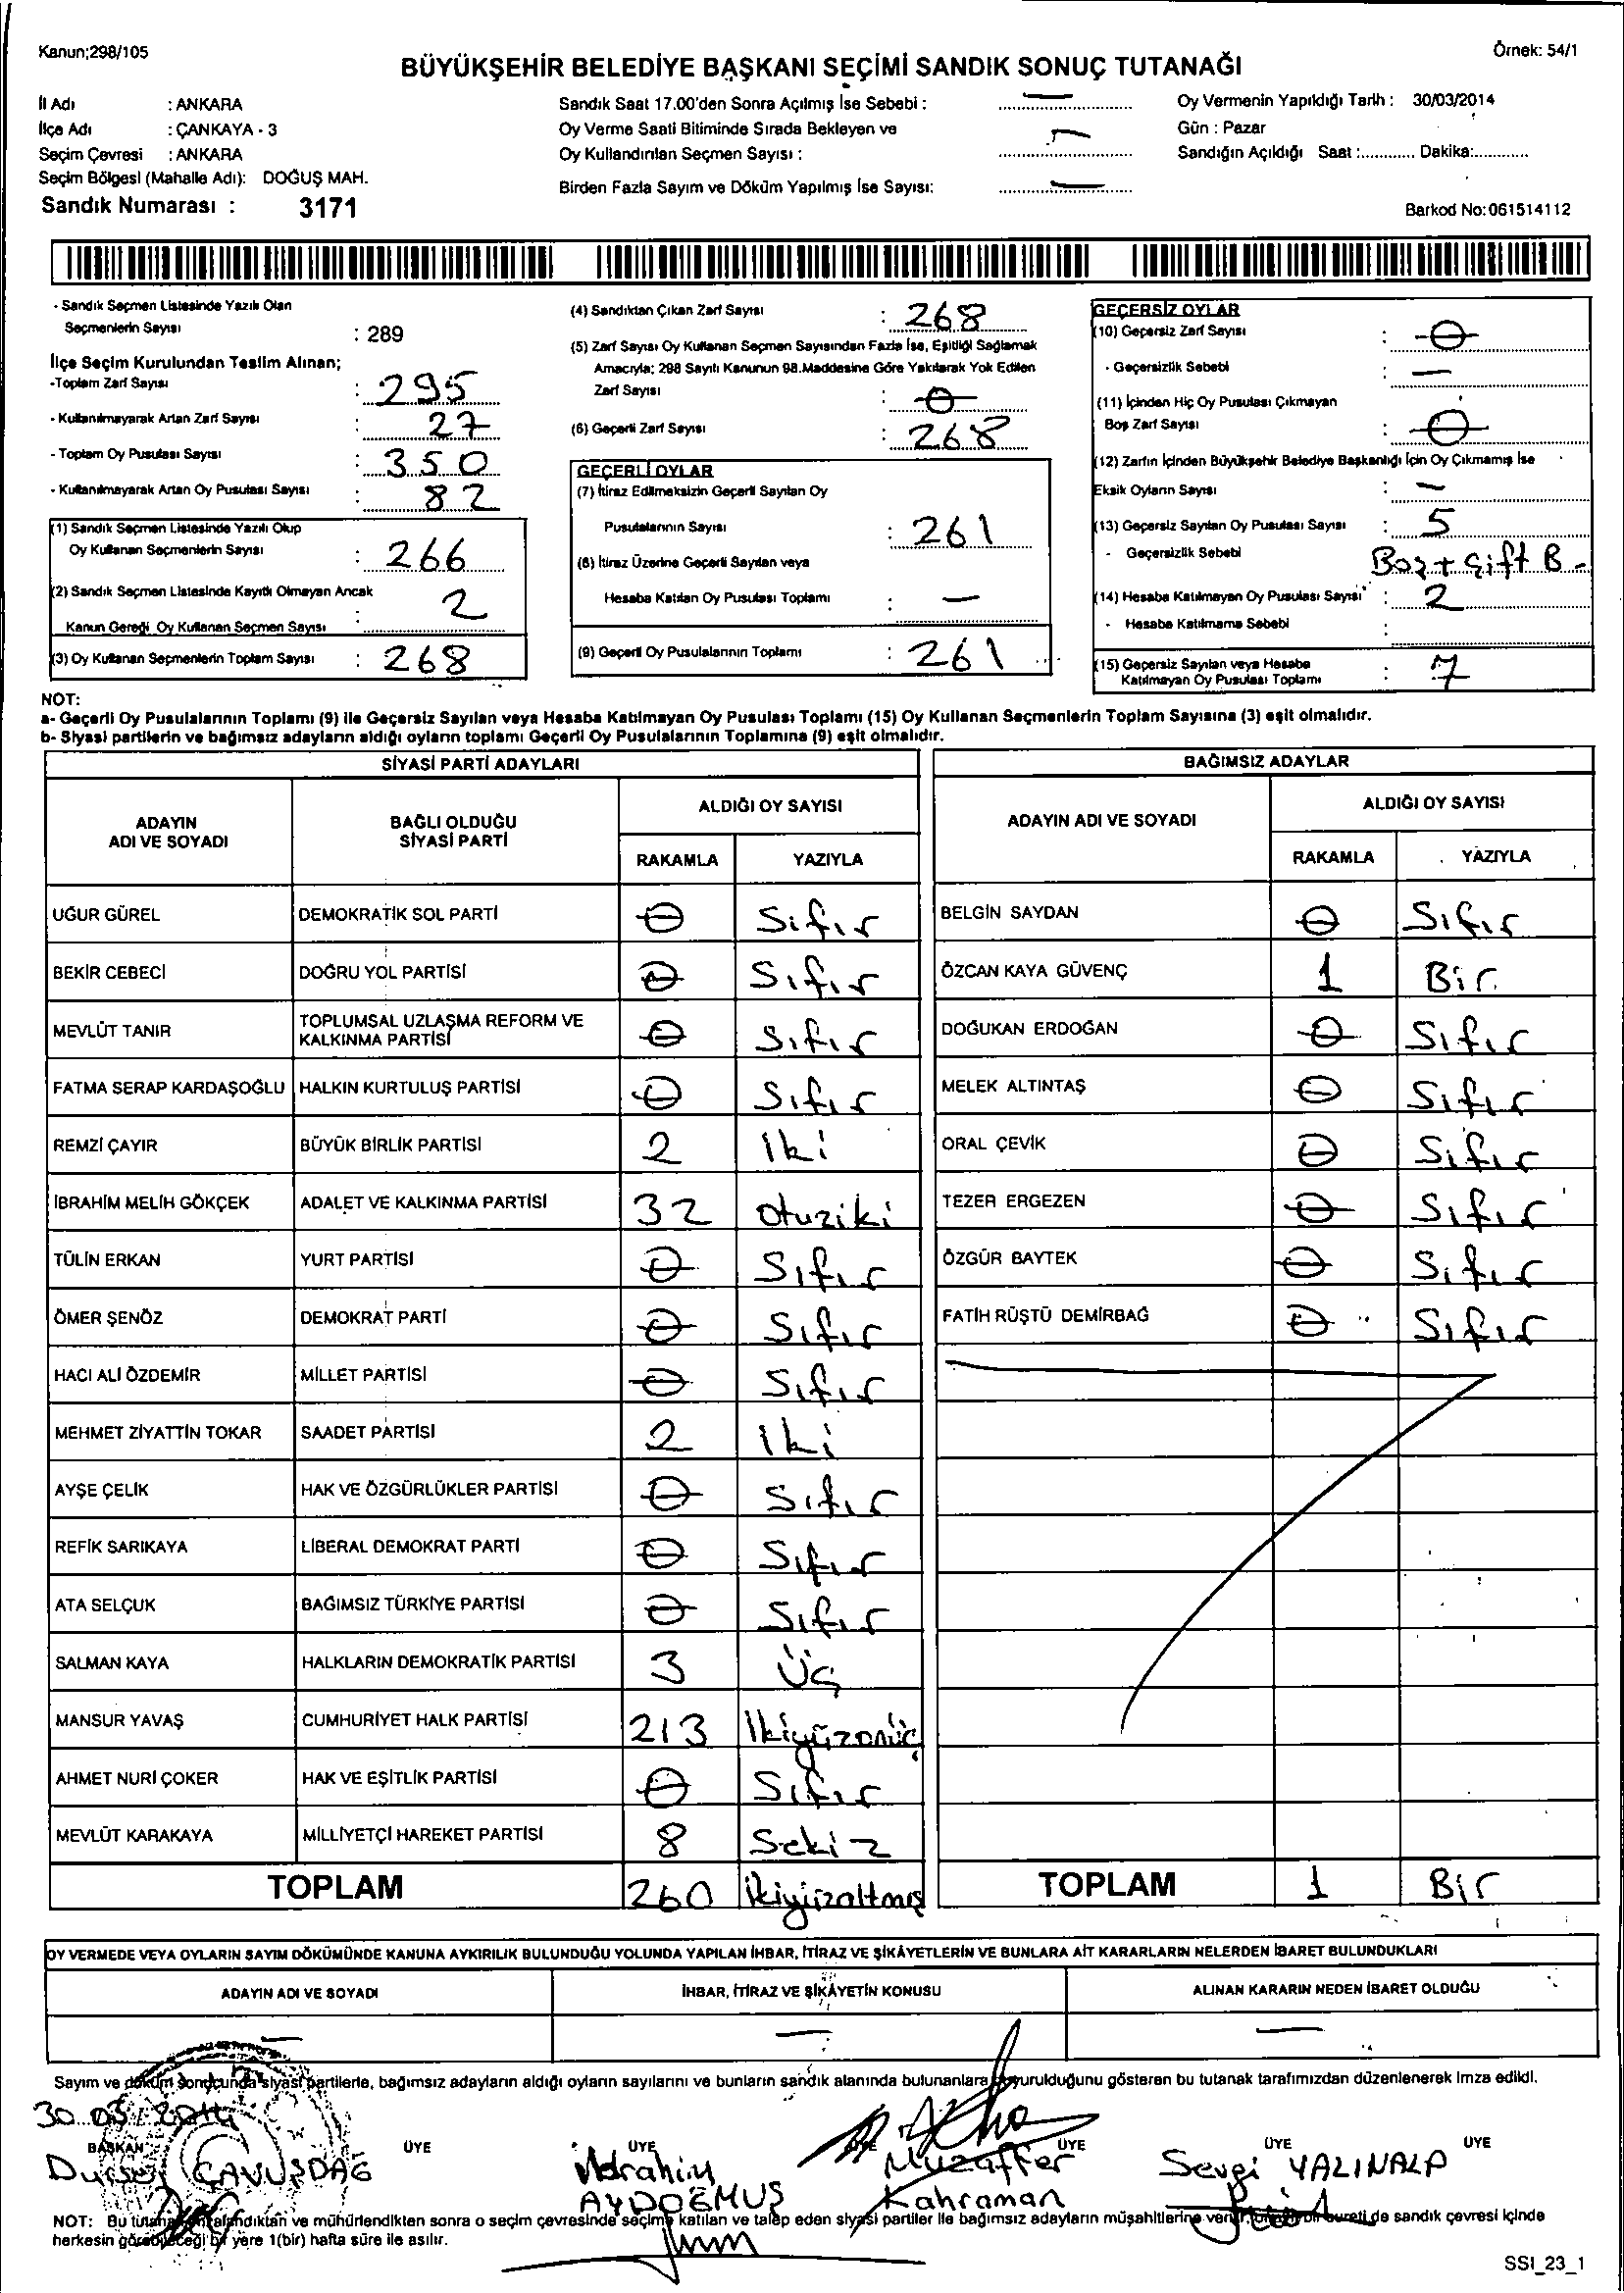 Kanun;298/105
Örnek: 54/1
BÜYÜKŞEHİR BELEDİYE BAŞKANI SEÇİMİ SANDIK SONUÇ TUTANAĞI
İl Adı : ANKARA
İlçe Adı : ÇANKAYA - 3
Seçim Çevresi : ANKARA
Seçim Bölgesi (Mahalle Adı): DOĞUŞ MAH.
Sandık Numarası : 3171
Sandık Saat 17.00'den Sonra Açılmış İse Sebebi : —
Oy Verme Saati Bitiminde Sırada Bekleyen ve
Oy Kullandırılan Seçmen Sayısı : —
Birden Fazla Sayım ve Döküm Yapılmış İse Sayısı: —
Oy Vermenin Yapıldığı Tarih : 30/03/2014
Gün : Pazar
Sandığın Açıldığı Saat :............ Dakika:............
Barkod No:061514112
- Sandık Seçmen Listesinde Yazılı Olan
Seçmenlerin Sayısı : 289
İlçe Seçim Kurulundan Teslim Alınan;
-Toplam Zarf Sayısı : 295
- Kullanılmayarak Artan Zarf Sayısı : 27
- Toplam Oy Pusulası Sayısı : 350
- Kullanılmayarak Artan Oy Pusulası Sayısı : 82
(1) Sandık Seçmen Listesinde Yazılı Olup
Oy Kullanan Seçmenlerin Sayısı : 266
(2) Sandık Seçmen Listesinde Kayıtlı Olmayan Ancak
Kanun Gereği Oy Kullanan Seçmen Sayısı : 2
(3) Oy Kullanan Seçmenlerin Toplam Sayısı : 268
(4) Sandıktan Çıkan Zarf Sayısı : 268
(5) Zarf Sayısı Oy Kullanan Seçmen Sayısından Fazla İse, Eşitliği Sağlamak
Amacıyla; 298 Sayılı Kanunun 98.Maddesine Göre Yakılarak Yok Edilen
Zarf Sayısı : 0
(6) Geçerli Zarf Sayısı : 268
GEÇERLİ OYLAR
(7) İtiraz Edilmeksizin Geçerli Sayılan Oy
Pusulalarının Sayısı : 261
(8) İtiraz Üzerine Geçerli Sayılan veya
Hesaba Katılan Oy Pusulası Toplamı : —
(9) Geçerli Oy Pusulalarının Toplamı : 261
GEÇERSİZ OYLAR
(10) Geçersiz Zarf Sayısı : 0
- Geçersizlik Sebebi : —
(11) İçinden Hiç Oy Pusulası Çıkmayan
Boş Zarf Sayısı : 0
(12) Zarfın İçinden Büyükşehir Belediye Başkanlığı İçin Oy Çıkmamış İse
Eksik Oyların Sayısı : —
(13) Geçersiz Sayılan Oy Pusulası Sayısı : 5
- Geçersizlik Sebebi Boş + Çift B -
(14) Hesaba Katılmayan Oy Pusulası Sayısı : 2
- Hesaba Katılmama Sebebi :
(15) Geçersiz Sayılan veya Hesaba
Katılmayan Oy Pusulası Toplamı : 7
NOT:
a- Geçerli Oy Pusulalarının Toplamı (9) ile Geçersiz Sayılan veya Hesaba Katılmayan Oy Pusulası Toplamı (15) Oy Kullanan Seçmenlerin Toplam Sayısına (3) eşit olmalıdır.
b- Siyasi partilerin ve bağımsız adayların aldığı oyların toplamı Geçerli Oy Pusulalarının Toplamına (9) eşit olmalıdır.
SİYASİ PARTİ ADAYLARI
ADAYIN ADI VE SOYADI
BAĞLI OLDUĞU SİYASİ PARTİ
ALDIĞI OY SAYISI
RAKAMLA YAZIYLA
UĞUR GÜREL DEMOKRATİK SOL PARTİ 0 Sıfır
BEKİR CEBECİ DOĞRU YOL PARTİSİ 0 Sıfır
MEVLÜT TANIR TOPLUMSAL UZLAŞMA REFORM VE KALKINMA PARTİSİ 0 Sıfır
FATMA SERAP KARDAŞOĞLU HALKIN KURTULUŞ PARTİSİ 0 Sıfır
REMZİ ÇAYIR BÜYÜK BİRLİK PARTİSİ 2 İki
İBRAHİM MELİH GÖKÇEK ADALET VE KALKINMA PARTİSİ 32 otuziki
TÜLİN ERKAN YURT PARTİSİ 0 Sıfır
ÖMER ŞENÖZ DEMOKRAT PARTİ 0 Sıfır
HACI ALİ ÖZDEMİR MİLLET PARTİSİ 0 Sıfır
MEHMET ZİYATTİN TOKAR SAADET PARTİSİ 2 İki
AYŞE ÇELİK HAK VE ÖZGÜRLÜKLER PARTİSİ 0 Sıfır
REFİK SARIKAYA LİBERAL DEMOKRAT PARTİ 0 Sıfır
ATA SELÇUK BAĞIMSIZ TÜRKİYE PARTİSİ 0 Sıfır
SALMAN KAYA HALKLARIN DEMOKRATİK PARTİSİ 3 Üç
MANSUR YAVAŞ CUMHURİYET HALK PARTİSİ 213 İkiyüzonüç
AHMET NURİ ÇOKER HAK VE EŞİTLİK PARTİSİ 0 Sıfır
MEVLÜT KARAKAYA MİLLİYETÇİ HAREKET PARTİSİ 8 Sekiz
TOPLAM 260 ikiyüzaltmış
BAĞIMSIZ ADAYLAR
ADAYIN ADI VE SOYADI
ALDIĞI OY SAYISI
RAKAMLA YAZIYLA
BELGİN SAYDAN 0 Sıfır
ÖZCAN KAYA GÜVENÇ 1 Bir
DOĞUKAN ERDOĞAN 0 Sıfır
MELEK ALTINTAŞ 0 Sıfır
ORAL ÇEVİK 0 Sıfır
TEZER ERGEZEN 0 Sıfır
ÖZGÜR BAYTEK 0 Sıfır
FATİH RÜŞTÜ DEMİRBAĞ 0 Sıfır
TOPLAM 1 Bir
OY VERMEDE VEYA OYLARIN SAYIM DÖKÜMÜNDE KANUNA AYKIRILIK BULUNDUĞU YOLUNDA YAPILAN İHBAR, İTİRAZ VE ŞİKÂYETLERİN VE BUNLARA AİT KARARLARIN NELERDEN İBARET BULUNDUKLARI
ADAYIN ADI VE SOYADI
İHBAR, İTİRAZ VE ŞİKÂYETİN KONUSU
ALINAN KARARIN NEDEN İBARET OLDUĞU
— — —
Sayım ve döküm sonucunda siyasi partilerle, bağımsız adayların aldığı oyların sayılarını ve bunların sandık alanında bulunanlara duyurulduğunu gösteren bu tutanak tarafımızdan düzenlenerek imza edildi.
30.03.2014
BAŞKAN ÜYE ÜYE ÜYE ÜYE ÜYE ÜYE
Dursun ÇAVUŞDAĞ
İbrahim AYDOĞMUŞ
Muzaffer Kahraman
Sevgi YALINALP
NOT: Bu tutanak ve mühürlendikten sonra o seçim çevresinde seçime katılan ve talep eden siyasi partiler ile bağımsız adayların müşahitlerine verilir. bir sureti de sandık çevresi içinde
herkesin görebileceği bir yere 1(bir) hafta süre ile asılır.
SSI_23_1